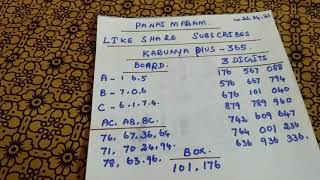 PANAI MARAM.
LIKE SHARE SUBSCRIBES
KARUNYA PLUS - 365.
BOARD.
3 DIGITS
A - 1 6.5
B - 7.0.6
C - 6.1.7.4.
AC, AB, BC.
76, 67.36, 64
71, 70.24, 94.
78, 63.96.
BOX.
101, 176
176 567 088
566 667 794
676 101 040
879 789 960
742 609 647
764 001 236
636 936 336.